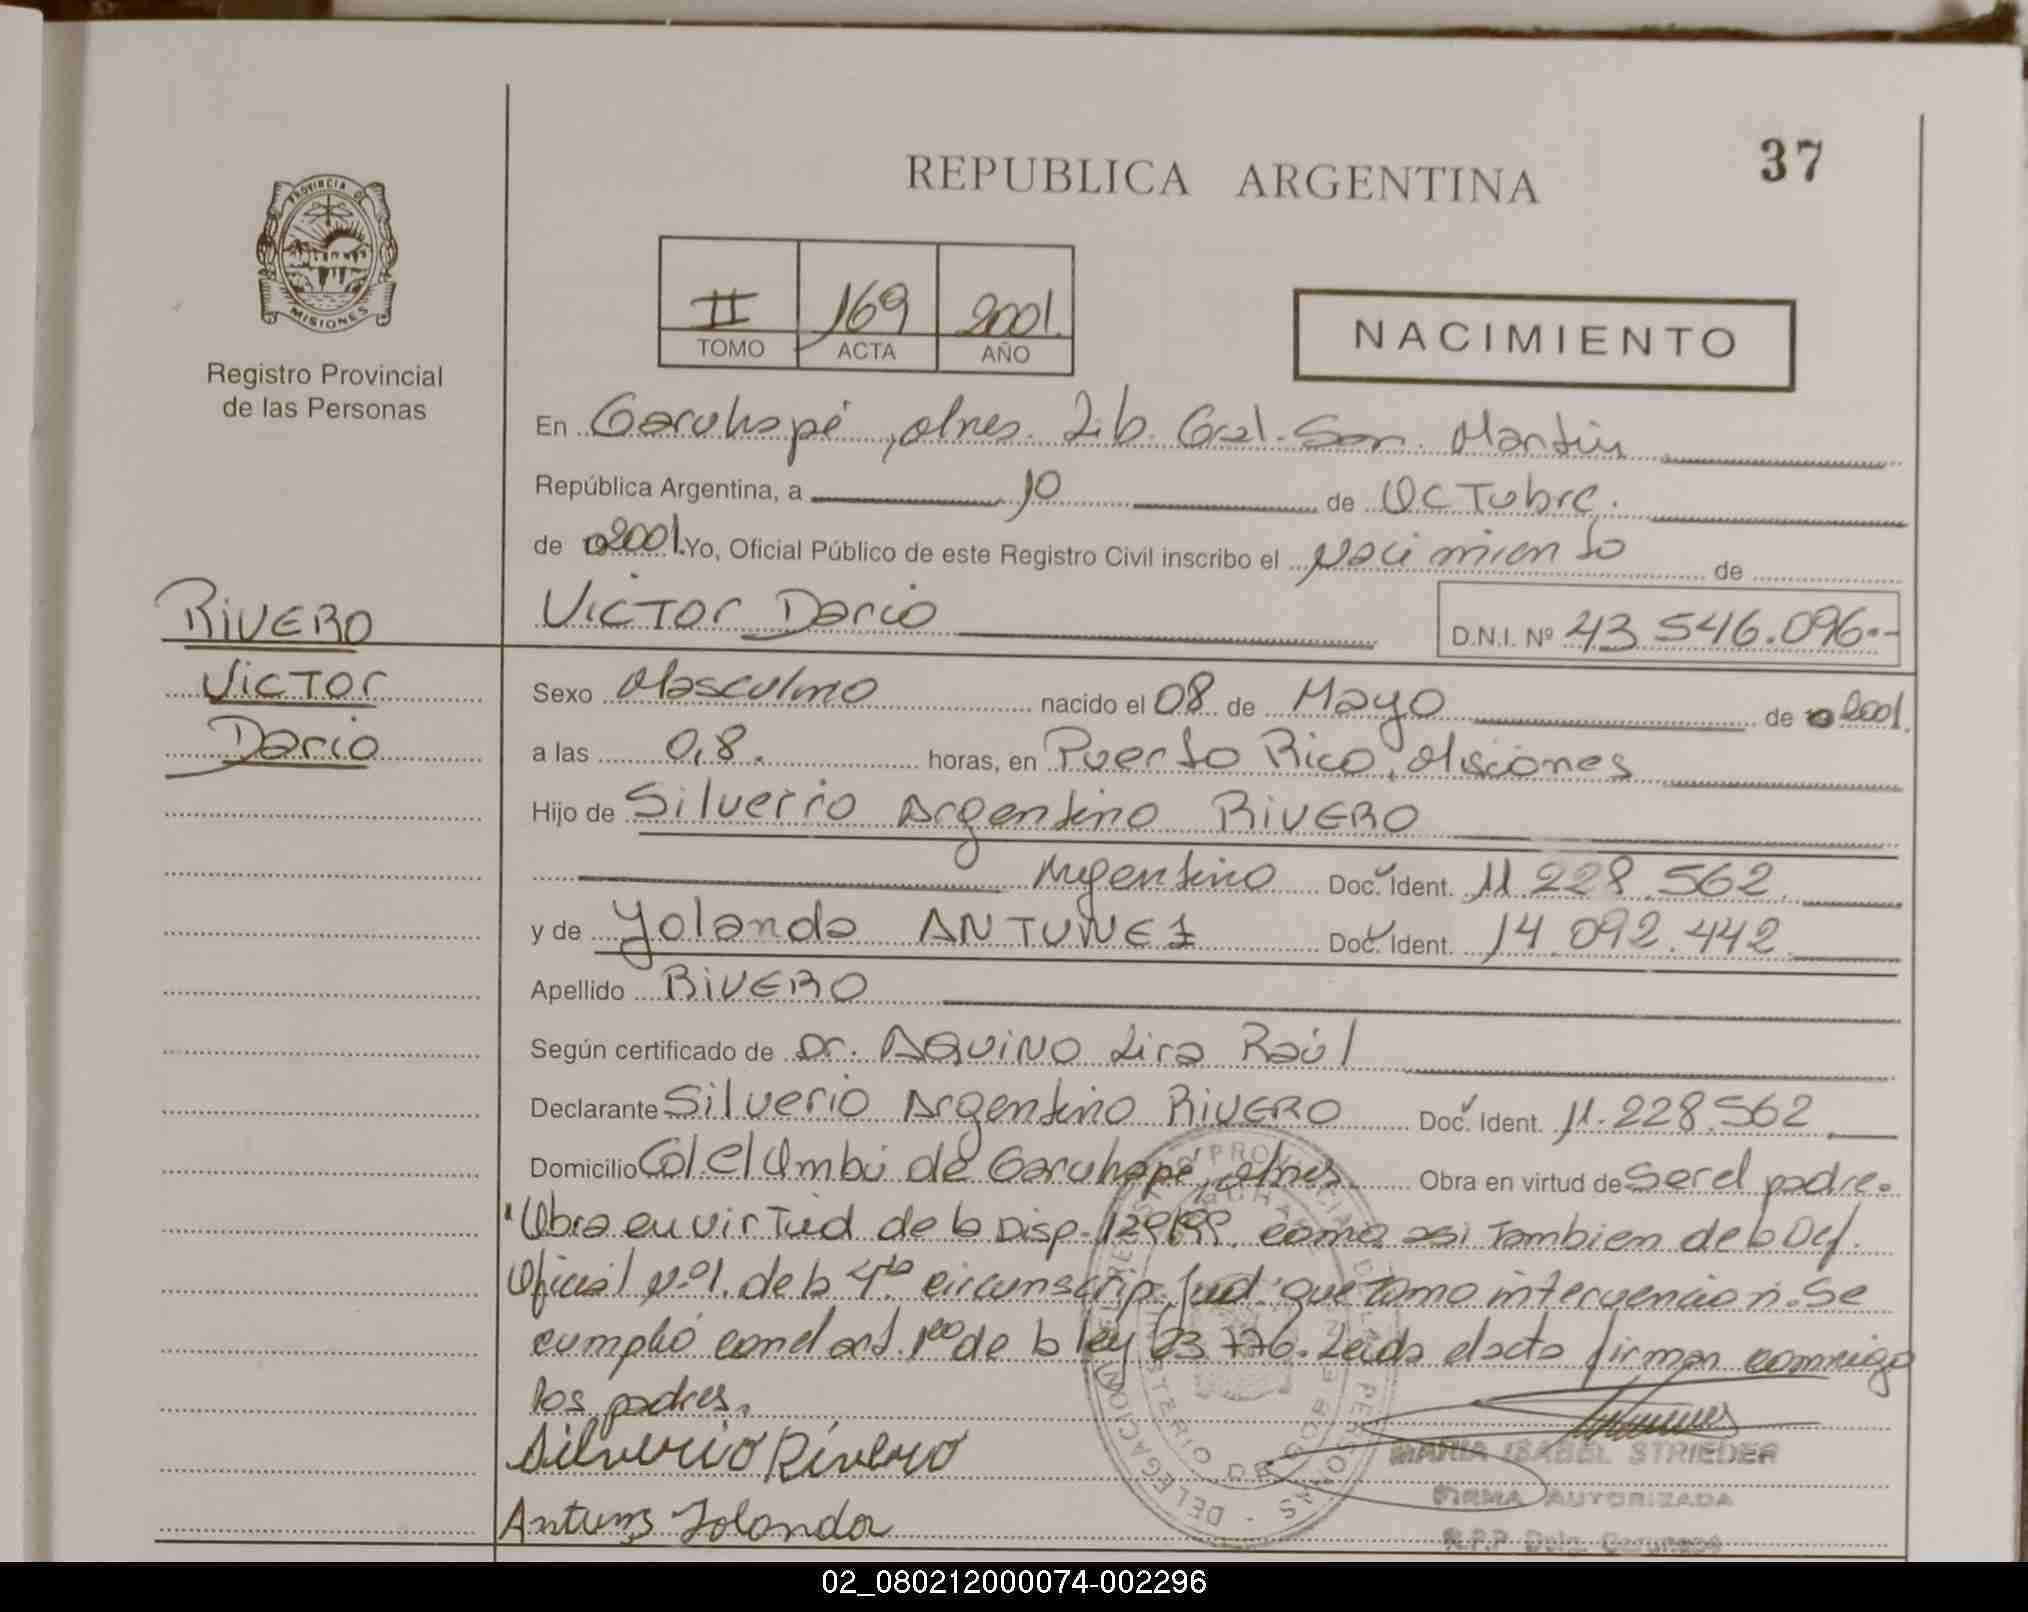 37
REPUBLICA ARGENTINA
PROVINCIA DE
MISIONES
Registro Provincial
de las Personas
II 169 2001.
TOMO ACTA AÑO
NACIMIENTO
En Garuhapé, Mnes. Lib. Gral. San. Martín
República Argentina, a 10 de Octubre.
de 2001. Yo, Oficial Público de este Registro Civil inscribo el Nacimiento de
RIVERO
VICTOR
Dario
VICTOR Dario D.N.I. Nº 43 546.096.-
Sexo Masculino nacido el 08 de Mayo de 2001.
a las 0,8. horas, en Puerto Rico, Misiones
Hijo de Silverio Argentino RIVERO
Argentino Doc. Ident. 11 228.562
y de Yolanda ANTUNEZ Doc. Ident. 14 092.442
Apellido RIVERO
Según certificado de Dr. AQUINO Lira Raúl
Declarante Silverio Argentino RIVERO Doc. Ident. 11.228.562
Domicilio Col. el Ombú de Garuhapé, Mnes. Obra en virtud de Ser el padre.
"Obra en virtud de la Disp. 129/99. como asi Tambien de la Def.
Oficial Nº 1. de la 4ta circunscrip. Jud. que tomo intervencion. Se
cumplió con el art. 1ro de la ley 23.776. Leida el acta firman conmigo
los padres.
Silverio Rivero
MARIA ISABEL STRIEDER
FIRMA AUTORIZADA
R.P.P Deleg. Garuhapé
Antunz Yolanda
02_080212000074-002296